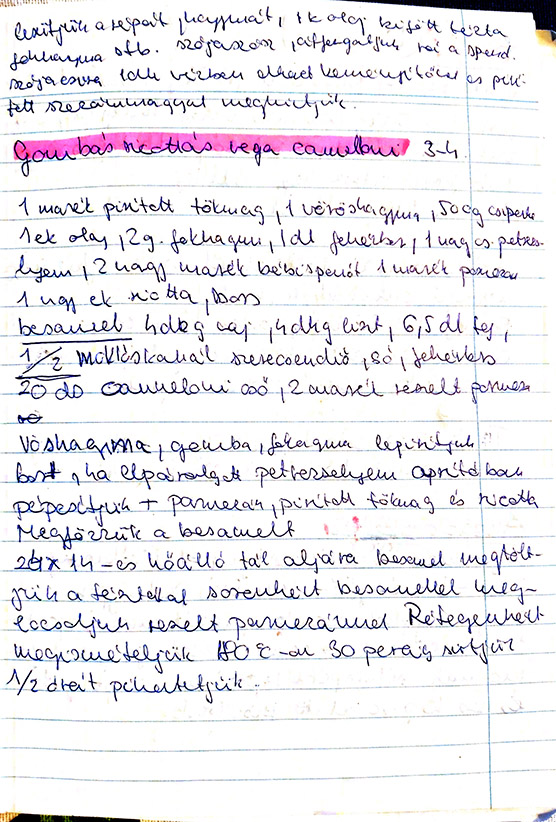 lepirítjük a répát, hagymát, 1 ek olaj között tészta
fokhagyma stb. szójaszósz, átforgatjuk rá a spend.
szójacsíra 1 dl vízben elkevert keményítővel és pirí-
tott szezámmaggal meghintjük.
Gombás ricottás vega cannelloni 3-4.
1 marék pirított tökmag, 1 vöröshagyma, 500g csiperke
1 ek olaj, 2 g. fokhagym, 1 dl fehérbor, 1 nagy cs. petrezs-
lyem, 2 nagy marék bébispenót 1 marék parmezan
1 nagy ek ricotta, bors
besamel 4 dkg vaj, 4 dkg liszt, 6,5 dl tej,
1/2 mokkáskanál szerecsendió, só, fehérbors
20 db cannelloni cső, 2 marék reszelt parmezan
Vöshagyma, gomba, fokhagyma lepirítjuk
bort, ha elpárolgott petrezselyem aprítóban
pépesítjük + parmezan, pirított tökmag és ricotta
Megfőzzük a besamelt
24x14-es hőálló tál aljára besamel megtölt-
jük a tésztákat soronként besamellel meg-
locsoljuk reszelt parmezánnal Rétegenként
megismételjük 180 C-on 30 percig sütjük
1/2 órát pihentetjük.